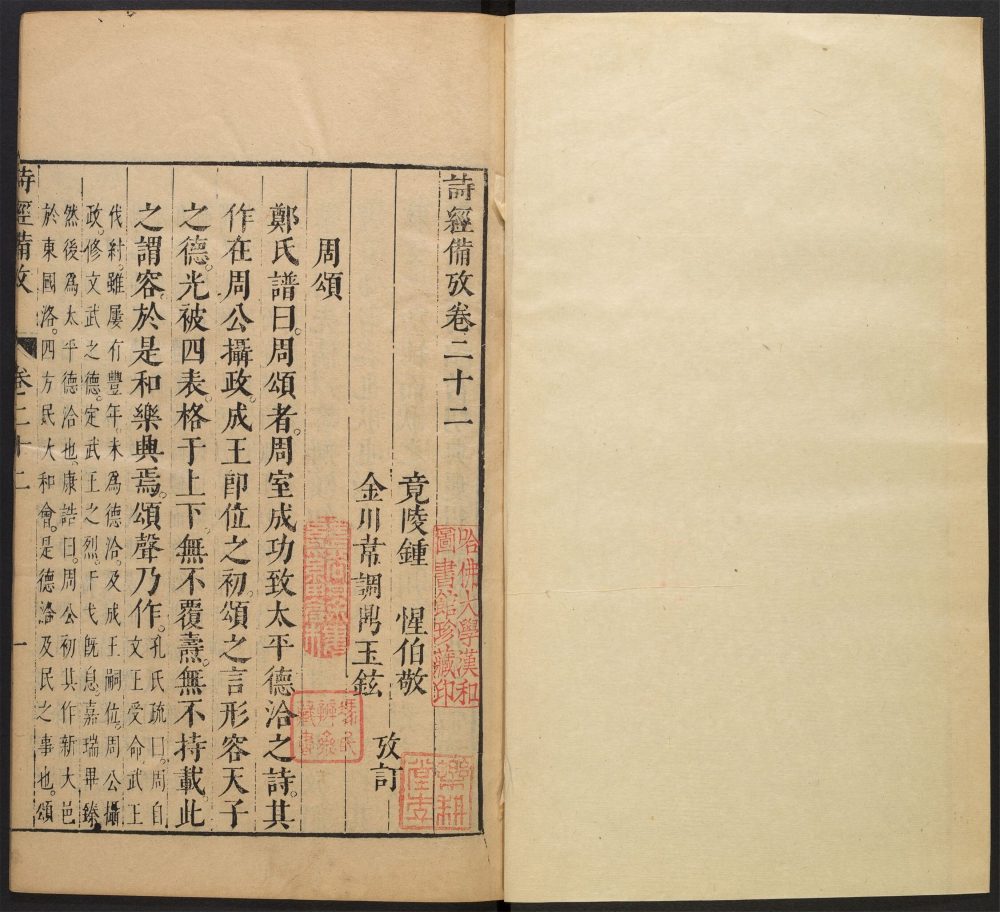 詩經備攷卷二十二
竟陵鍾　惺伯敬
金川韋調鼎玉鉉
攷訂
周頌
鄭氏譜曰。周頌者。周室成功致太平德洽之詩。其
作在周公攝政。成王卽位之初。頌之言形容天子
之德。光被四表。格于上下。無不覆燾。無不持載。此
之謂容。於是和樂興焉。頌聲乃作。
孔氏疏曰。周自
文王受命。武王
伐紂。雖屢有豐年。未爲德洽。及成王嗣位。周公攝
政。修文武之德。定武王之烈。干戈旣息。嘉瑞畢臻
然後爲太平德洽也。康誥曰。周公初其作新大邑
於東國洛。四方民大和會。是德洽及民之事也。頌
詩經備攷
卷二十二
一
哈佛大學漢和
圖書館珍藏印